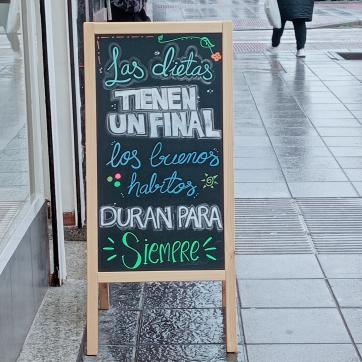 Las dietas
TIENEN
UN FINAL
los buenos
habitos
DURAN PARA
Siempre